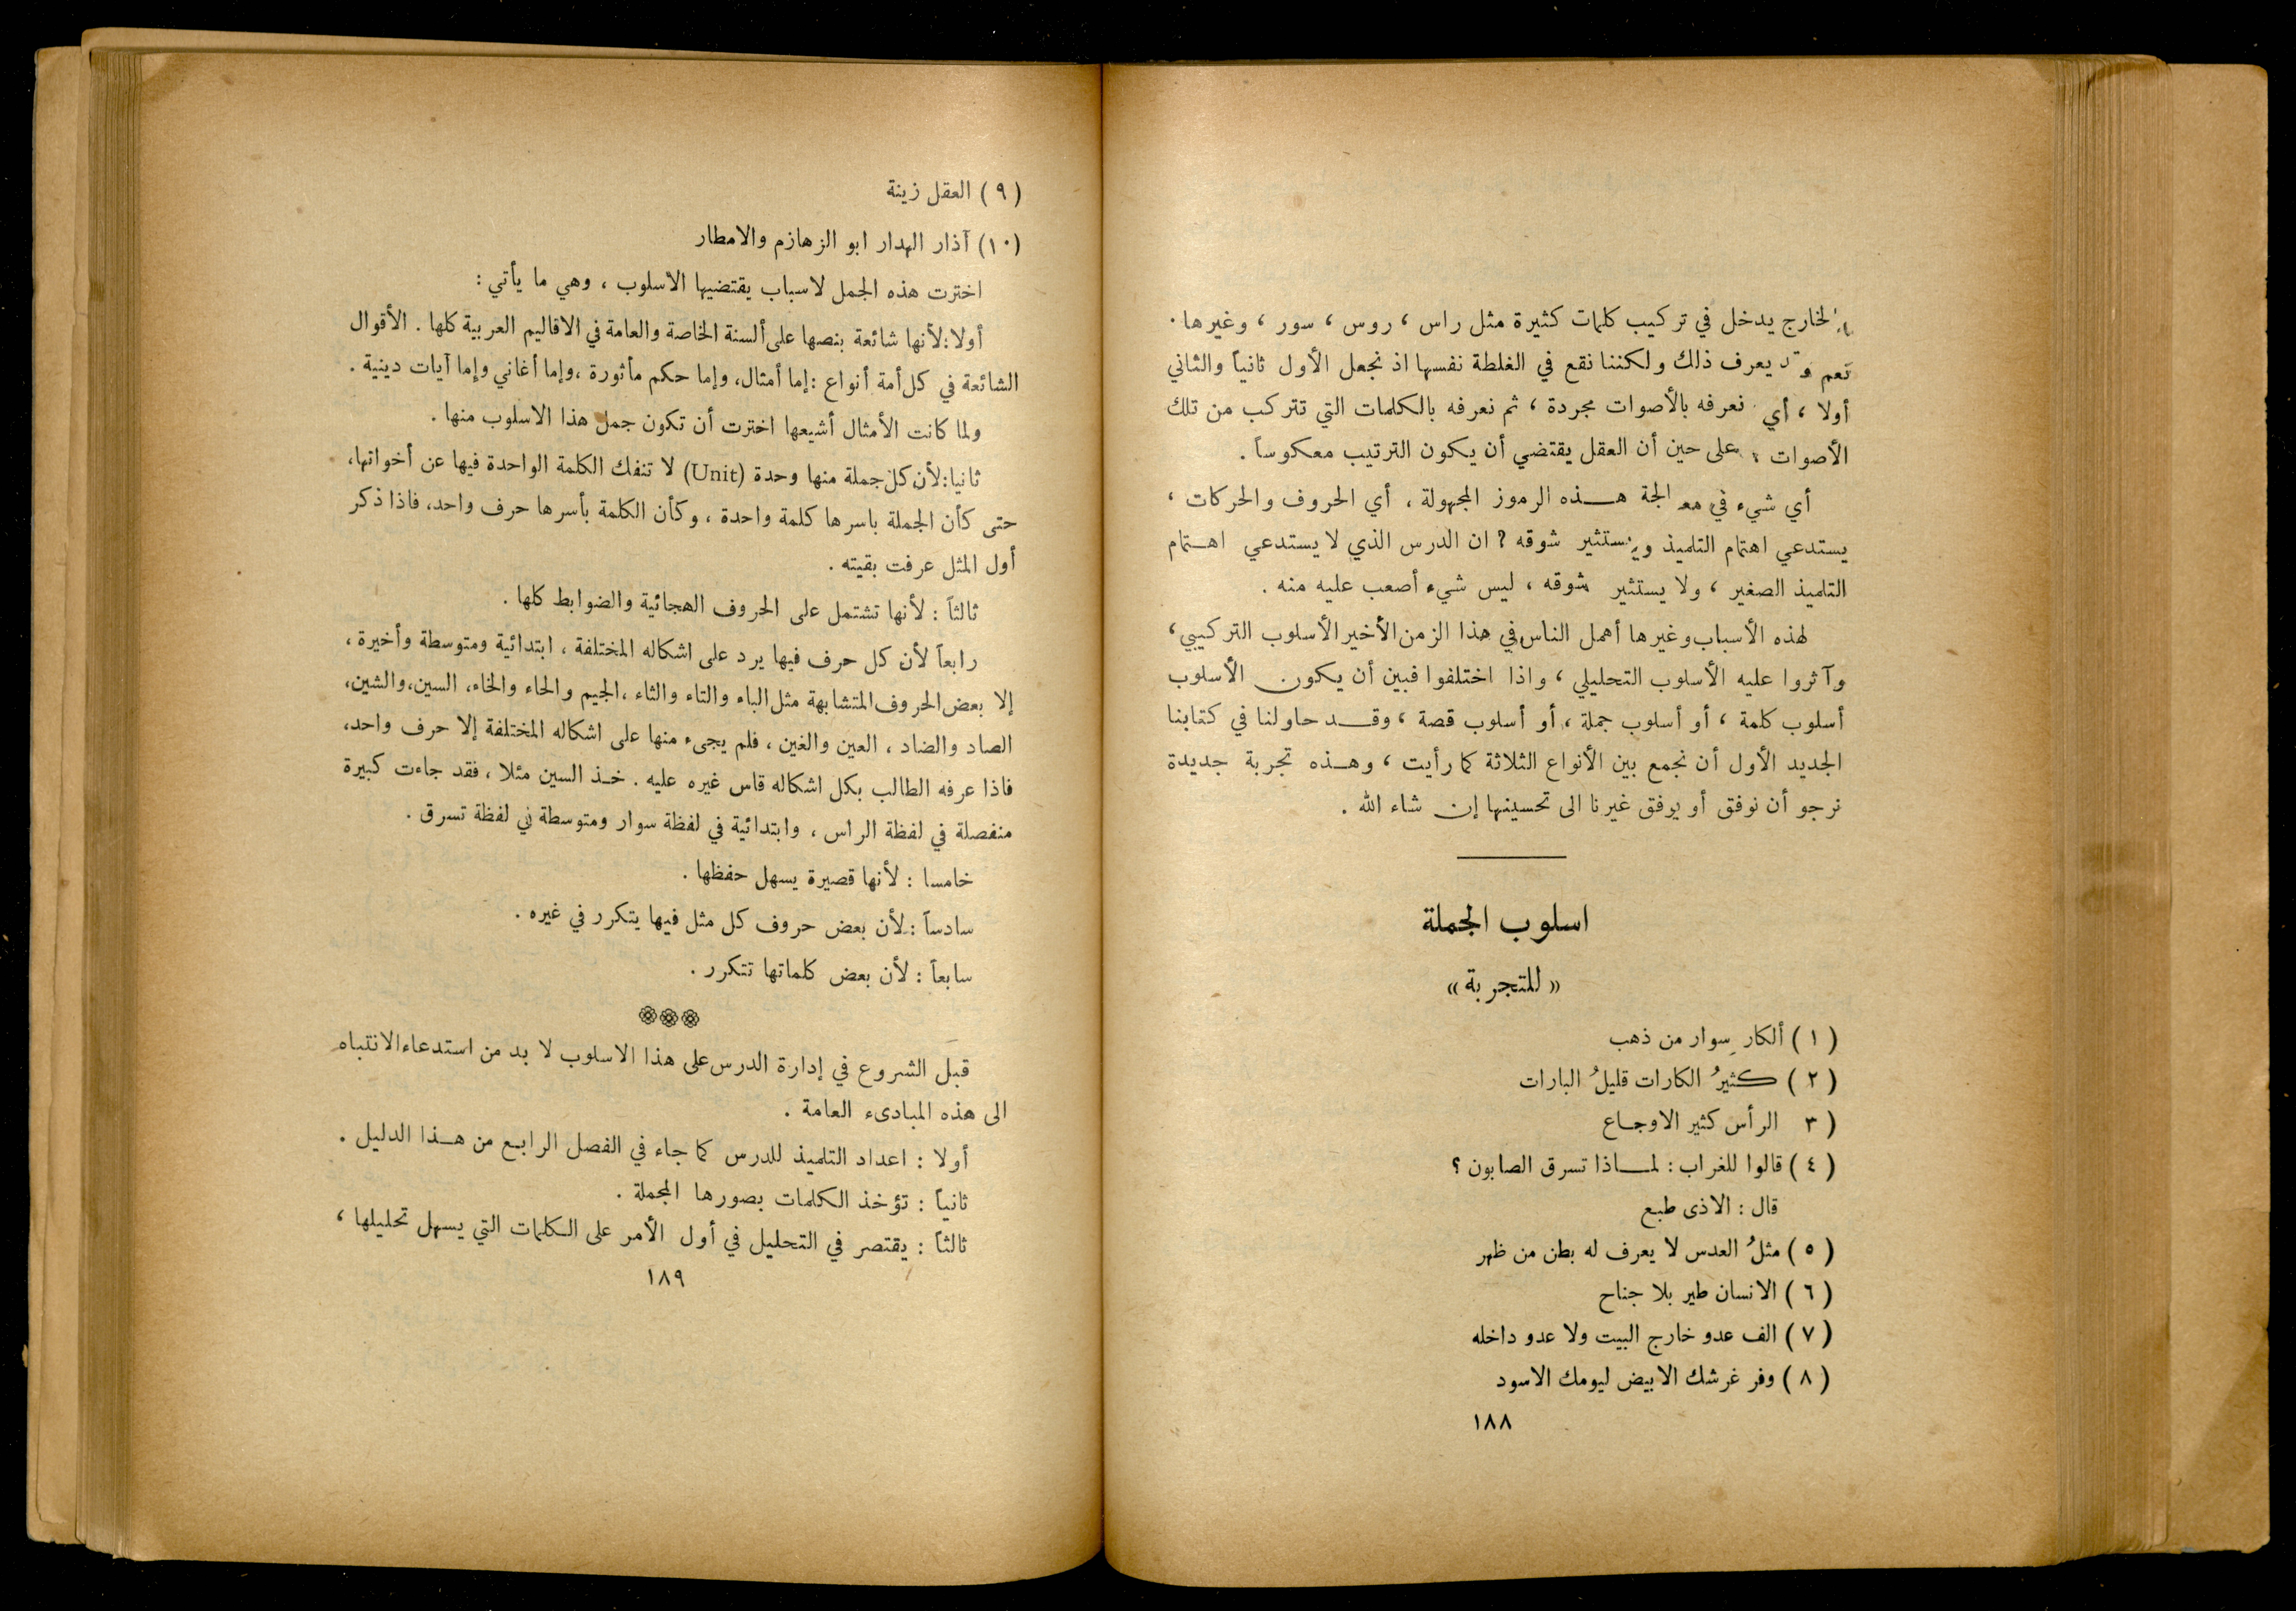 الخارج يدخل في تركيب كلمات كثيرة مثل راس ، روس ، سور ، وغيرها .
نعم وقد يعرف ذلك ولكننا نقع في الغلطة نفسها اذ نجعل الأول ثانياً والثاني
أولا ، أي نعرفه بالأصوات مجردة ، ثم نعرفه بالكلمات التي تتركب من تلك
الأصوات ، على حين أن العقل يقتضي أن يكون الترتيب معكوساً .
أي شيء في معالجة هذه الرموز المجهولة ، أي الحروف والحركات ،
يستدعي اهتمام التلميذ ويستثير شوقه ? ان الدرس الذي لا يستدعي اهتمام
التلميذ الصغير ، ولا يستثير شوقه ، ليس شيء أصعب عليه منه .
لهذه الأسباب وغيرها أهمل الناس في هذا الزمن الأخير الأسلوب التركيبي ،
وآثروا عليه الأسلوب التحليلي ، واذا اختلفوا فبين أن يكون الأسلوب
أسلوب كلمة ، أو أسلوب جملة ، أو أسلوب قصة ، وقد حاولنا في كتابنا
الجديد الأول أن نجمع بين الأنواع الثلاثة كما رأيت ، وهذه تجربة جديدة
نرجو أن نوفق أو يوفق غيرنا الى تحسينها إن شاء الله .
اسلوب الجملة
« للتجربة »
( ١ ) ألكار سِوار من ذهب
( ٢ ) كثيرُ الكارات قليلُ البارات
( ٣ الرأس كثير الاوجاع
( ٤ ) قالوا للغراب : لماذا تسرق الصابون ؟
قال : الاذى طبع
( ٥ ) مثلُ العدس لا يعرف له بطن من ظهر
( ٦ ) الانسان طير بلا جناح
( ٧ ) الف عدو خارج البيت ولا عدو داخله
( ٨ ) وفر غرشك الابيض ليومك الاسود
١٨٨
( ٩ ) العقل زينة
(١٠) آذار الهدار ابو الزهازم والامطار
اخترت هذه الجمل لاسباب يقتضيها الاسلوب ، وهي ما يأتي :
أولا : لأنها شائعة بنصها على ألسنة الخاصة والعامة في الاقاليم العربية كلها . الأقوال
الشائعة في كل أمة أنواع : إما أمثال ، وإما حكم مأثورة ، وإما أغاني وإما آيات دينية .
ولما كانت الأمثال أشيعها اخترت أن تكون جمل هذا الاسلوب منها .
ثانيا : لأن كل جملة منها وحدة (Unit) لا تنفك الكلمة الواحدة فيها عن أخواتها ،
حتى كأن الجملة باسرها كلمة واحدة ، وكأن الكلمة بأسرها حرف واحد ، فاذا ذكر
أول المثل عرفت بقيته .
ثالثاً : لأنها تشتمل على الحروف الهجائية والضوابط كلها .
رابعاً لأن كل حرف فيها يرد على اشكاله المختلفة ، ابتدائية ومتوسطة وأخيرة ،
إلا بعض الحروف المتشابهة مثل الباء والتاء والثاء ، الجيم والحاء والخاء ، السين ، والشين ،
الصاد والضاد ، العين والغين ، فلم يجىء منها على اشكاله المختلفة إلا حرف واحد ،
فاذا عرفه الطالب بكل اشكاله قاس غيره عليه . خذ السين مثلا ، فقد جاءت كبيرة
منفصلة في لفظة الراس ، وابتدائية في لفظة سوار ومتوسطة في لفظة تسرق .
خامسا : لأنها قصيرة يسهل حفظها .
سادساً : لأن بعض حروف كل مثل فيها يتكرر في غيره .
سابعاً : لأن بعض كلماتها تتكرر .
قبل الشروع في إدارة الدرس على هذا الاسلوب لا بد من استدعاء الانتباه
الى هذه المبادىء العامة .
أولا : اعداد التلميذ للدرس كما جاء في الفصل الرابع من هذا الدليل .
ثانياً : تؤخذ الكلمات بصورها المجملة .
ثالثاً : يقتصر في التحليل في أول الأمر على الكلمات التي يسهل تحليلها ،
١٨٩